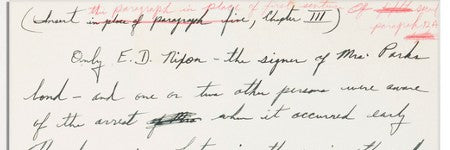 the paragraph in place of first sent
(Insert in place of paragraph five, Chapter III)
Only E. D. Nixon - the signer of Mrs. Parks
bond - and one or two other persons were aware
of the arrest of Mrs when it occurred early